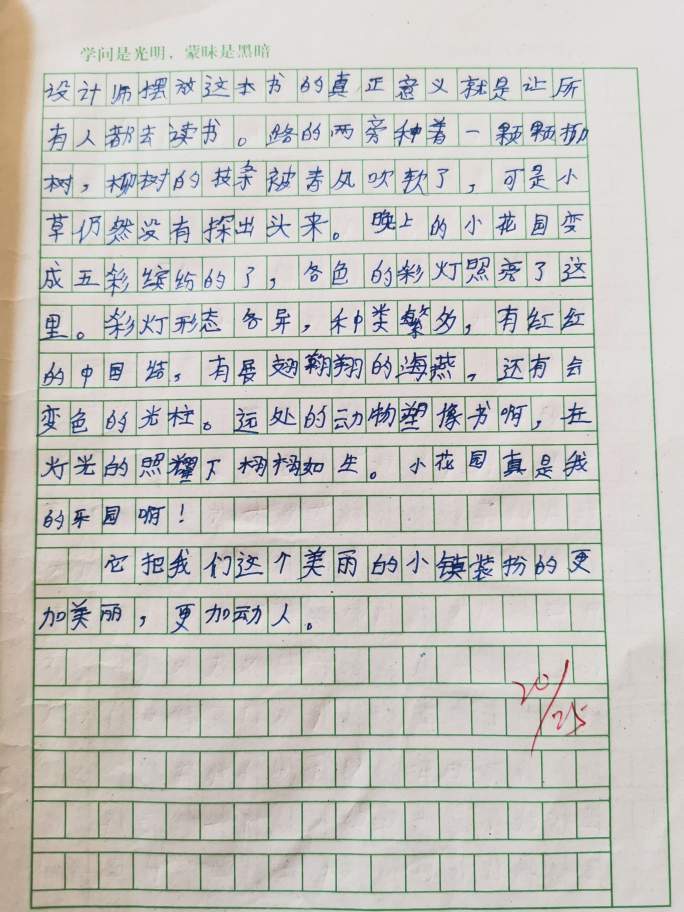 学问是光明，蒙昧是黑暗
设计师摆放这本书的真正意义就是让所
有人都去读书。路的两旁种着一颗颗柳
树，柳树的枝条被春风吹软了，可是小
草仍然没有探出头来。晚上的小花园变
成五彩缤纷的了，各色的彩灯照亮了这
里。彩灯形态各异，种类繁多，有红红
的中国结，有展翅翱翔的海燕，还有会
变色的光柱。远处的动物塑像书啊，在
灯光的照耀下栩栩如生。小花园真是我
的乐园啊！
它把我们这个美丽的小镇装扮的更
加美丽，更加动人。
20/25